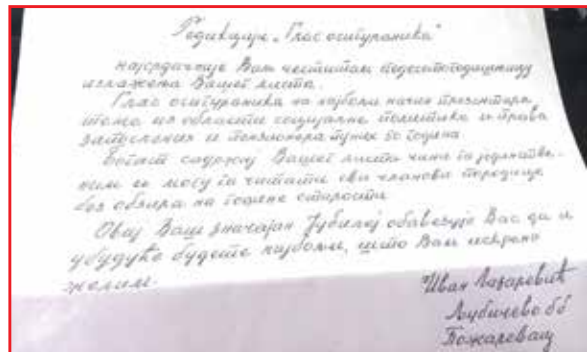 Редакцији „Глас осигураника“
најсрдачније Вам честитам педесетогодишњицу
излажења Вашег листа.
Глас осигураника на најбољи начин презентира
из области социјалне политике и права
запослених и пензионера пуних 50 година
Богат садржај Вашег листа чини га јединстве-
ним се могу га читати сви чланови породице
без обзира на године старости
Овај Ваш значајан Јубилеј обавезује Вас да и
убудуће будете најбољи, што Вам искрено
желим.
Иван Лазаревић
Љубичево бб
Пожаревац